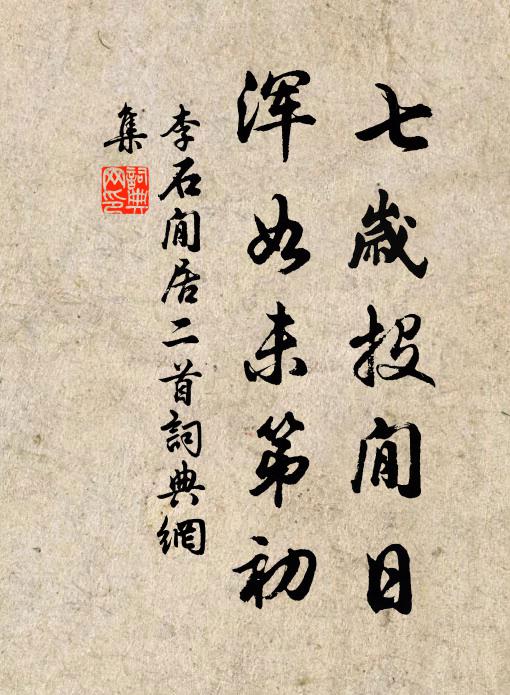 七歲投閒日
浑如未第初
李石閒居二首詞典網
集
詞典
网印